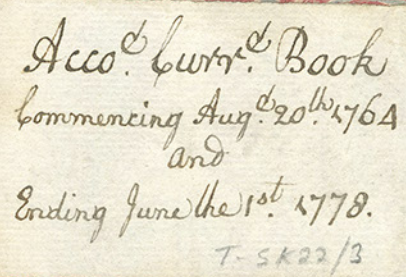 Accot. Currt. Book
Commencing Augt. 20th. 1764
and
Ending June the 1st. 1778.
T-SK22/3